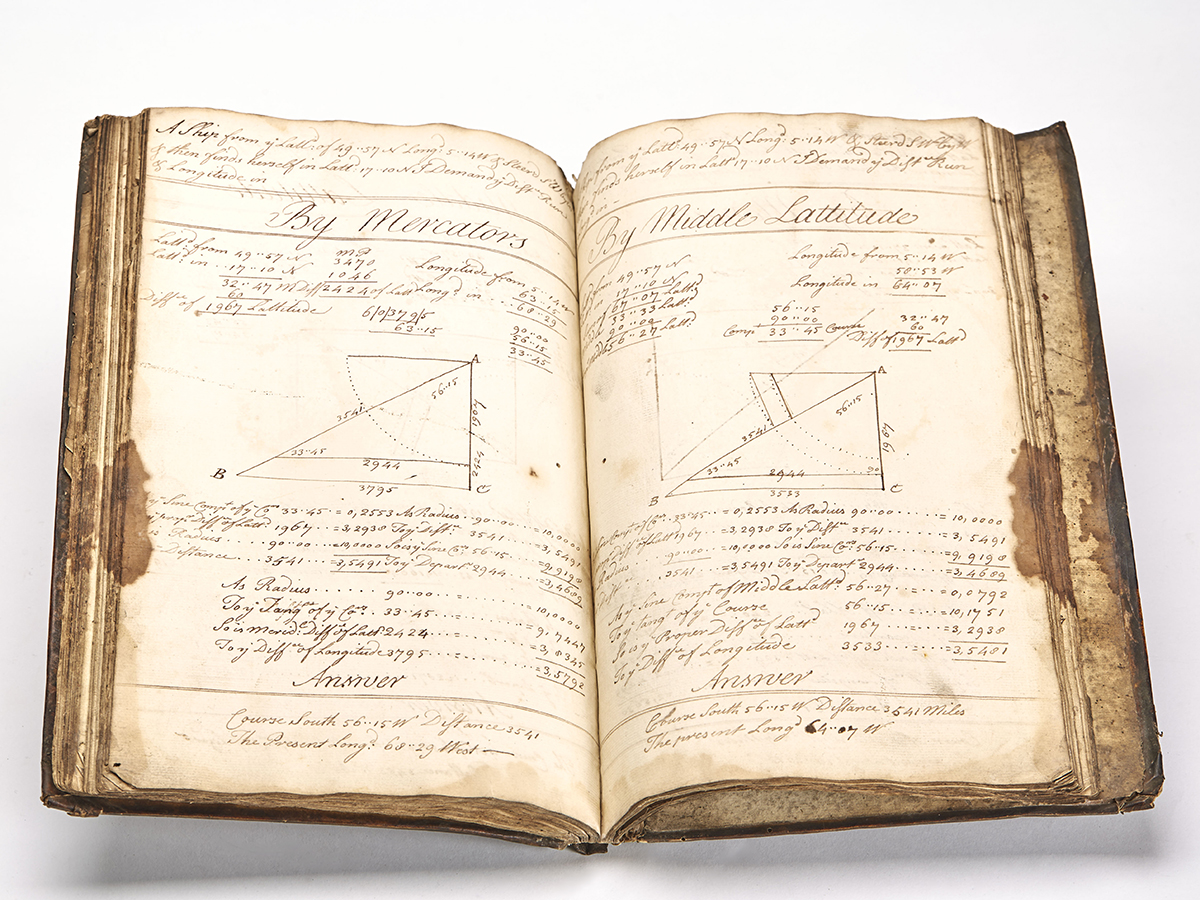 A Ship from yͤ Lattᵈ: of 49··57 N Longᵈ: 5··14 W & Steerd SWbyW
& then finds herself in Lattᵈ 17··10 N I Demand yͤ Distᶜᵉ Run
& Longitude in
By Mercators
Lattᵈ: from 49··57 N
Lattᵈ: in 17··10 N
32··47
60
Diffᶜᵉ of 1967 Lattitude
mP
3470
1046
M Diff 2424 of Latt
Longitude from 5··14 W
63··15
Longᵈ: in 68··29
6|0|379|5
63··15
90··00
56··15
33··45
A
56··15
3541
1967
2424
33··45
2944
B
3795
C
Sine Compᵗ of yͤ Coᵉ 33··45 = 0,2553 As Radius 90··00 = 10,0000
Diffᶜᵉ of Lattᵈ 1967 = 3,2938 To yͤ Distᶜᵉ 3541 = 3,5491
Radius 90··00 = 10,0000 So is yͤ Sine Coᵉ 56··15 = 9,9198
Distance 3541 = 3,5491 To yͤ Departᵉ 2944 = 3,4689
As Radius 90··00 = 10,0000
To yͤ Tangᵗ of yͤ Coᵉ 33··45 = 9,7447
So is Merid: Diffᶜᵉ of Lattᵈ 2424 = 3,8345
To yͤ Diffᶜᵉ of Longitude 3795 = 3,5792
Answer
Course South 56··15 W Distance 3541
The Present Longᵈ: 68··29 West
from yͤ Lattᵈ 49··57 N Longᵈ: 5··14 W & Steerd SWbyW
finds herself in Lattᵈ 17··10 N I Demand yͤ Distᶜᵉ Run
in
By Middle Lattitude
from 49··57 N
17··10 N
67··07 Lattᵈ
33··33 Lattᵈ
90··00
56··27 Lattᵈ:
Longitude from 5··14 W
58··53 W
Longitude in 64··07
56··15
90··00
Compᵗ 33··45 Course
32··47
60
Diffᶜᵉ of 1967 Lattᵈ
A
56··15
3541
1967
33··45
2944
90
B
3533
C
Compᵗ of Coᵉ 33··45 = 0,2553 As Radius 90··00 = 10,0000
Diffᶜᵉ of Latt 1967 = 3,2938 To yͤ Distᶜᵉ 3541 = 3,5491
Radius 90··00 = 10,1000 So is Sine Coᵉ 56··15 = 9,9198
3541 = 3,5491 To yͤ Depart 2944 = 3,4689
As yͤ Sine Compᵗ of Middle Lattᵈ: 56··27 = 0,0792
To yͤ Tangᵗ of yͤ Course 56··15 = 10,1751
So is yͤ Proper Diffᶜᵉ of Lattᵈ 1967 = 3,2938
To yͤ Diffᶜᵉ of Longitude 3533 = 3,5481
Answer
Course South 56··15 W Distance 3541 Miles
The present Longᵈ 64··07 W